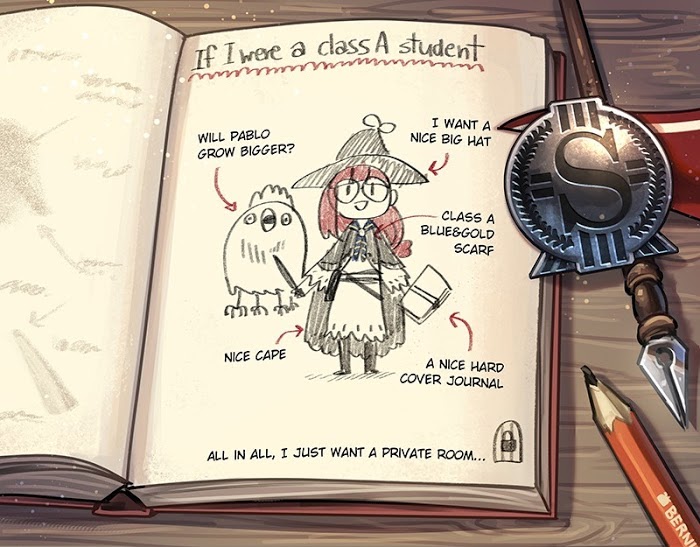 If I were a class A student
WILL PABLO
GROW BIGGER?
I WANT A
NICE BIG HAT
CLASS A
BLUE&GOLD
SCARF
NICE CAPE
A NICE HARD
COVER JOURNAL
ALL IN ALL, I JUST WANT A PRIVATE ROOM...
S